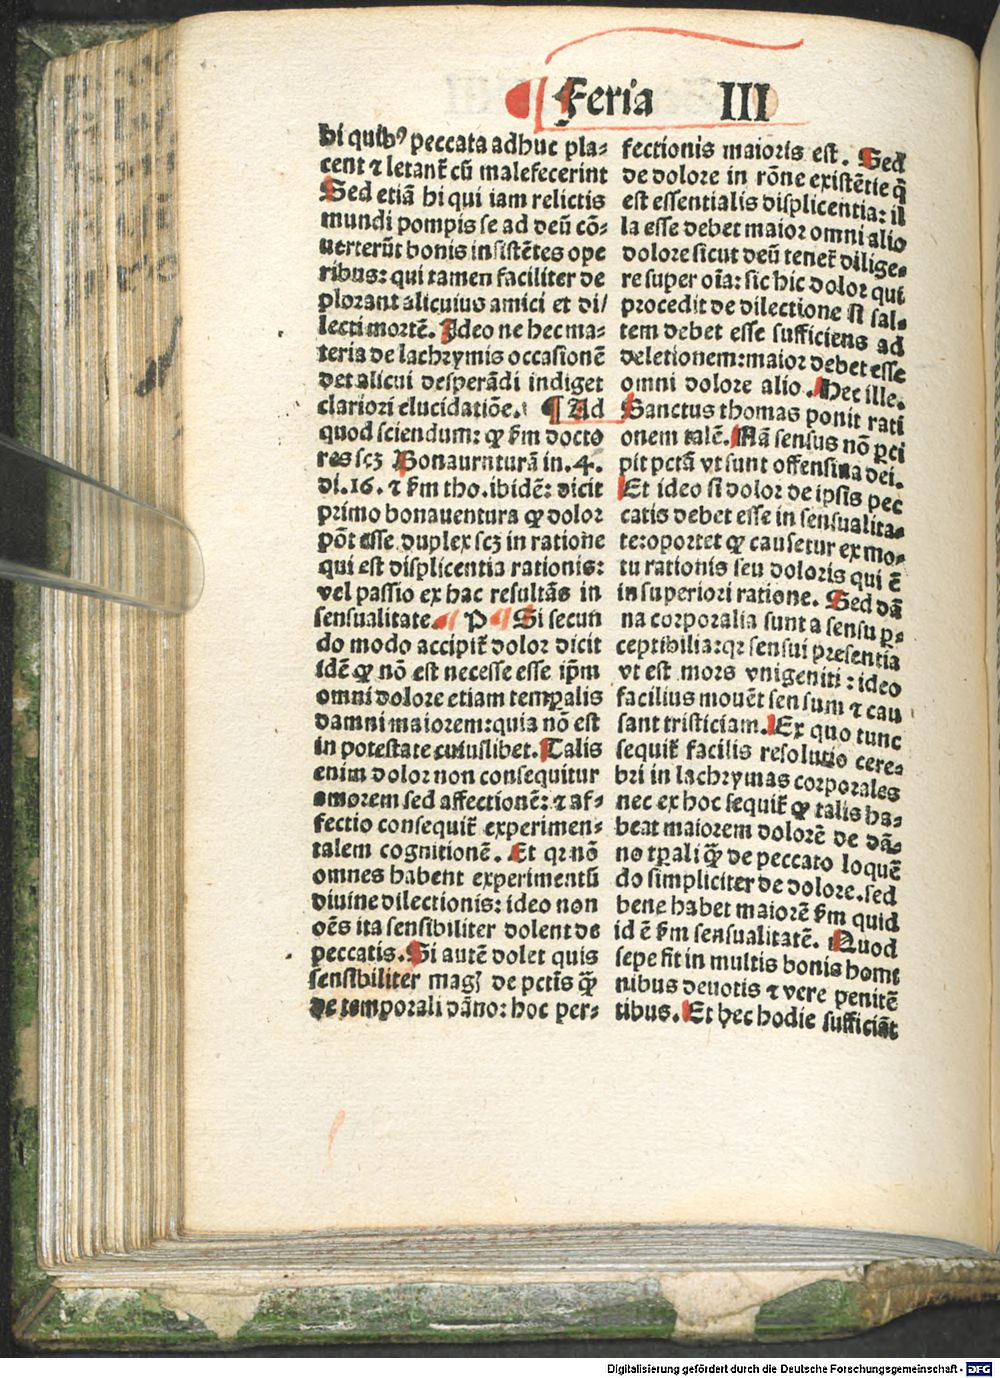 Feria III
hi quibꝰ peccata adhuc pla⸗
cent ⁊ letant̃ cũ malefecerint
Sed etiã hi qui iam relictis
mundi pompis se ad deũ cõ⸗
uerterũt bonis insistẽtes ope
ribus: qui tamen faciliter de
plorant alicuius amici et di/
lecti mortẽ. Ideo ne hec ma⸗
teria de lachrymis occasionẽ
det alicui desperãdi indiget
clariori elucidatiõe. ¶ Ad
quod sciendum: ꝙ ẜm docto
res scꝫ Bonauruturã in .4.
di.16. ⁊ ẜm tho. ibidẽ: dicit
primo bonauentura ꝙ dolor
põt esse duplex scꝫ in ratione
qui est displicentia rationis:
vel passio ex hac resultãs in
sensualitate. P Si secun
do modo accipit̃ dolor dicit
idẽ ꝙ nõ est necesse esse ip̃m
omni dolore etiam temꝑalis
damni maiorem: quia nõ est
in potestate cuiuslibet. Talis
enim dolor non consequitur
amorem sed affectionẽ: ⁊ af⸗
fectio consequit̃ experimen⸗
talem cognitionẽ. Et qꝛ nõ
omnes habent experimentũ
diuine dilectionis: ideo non
oẽs ita sensibiliter dolent de
peccatis. Si autẽ dolet quis
sensibiliter magꝭ de pctĩs q̃ꝫ
de temporali dãno: hoc per⸗
fectionis maioris est. Sed
de dolore in rõne existẽtie q̃
est essentialis displicentia: il
la esse debet maior omni alio
dolore sicut deũ tenet̃ dilige⸗
re super oĩa: sic hic dolor qui
procedit de dilectione si sal⸗
tem debet esse sufficiens ad
deletionem: maior debet esse
omni dolore alio. Hec ille.
Sanctus thomas ponit rati
onem talẽ. Nã sensus nõ ꝑci
pit pctã vt sunt offensiua dei.
Et ideo si dolor de ipsis pec
catis debet esse in sensualita⸗
te: oportet ꝙ causetur ex mo⸗
tu rationis seu doloris qui ẽ
in superiori ratione. Sed dã
na corporalia sunt a sensu ꝑ⸗
ceptibilia: qꝛ sensui presentia
vt est mors vnigeniti: ideo
facilius mouẽt sensum ⁊ cau
sant tristiciam. Ex quo tunc
sequit̃ facilis resolutio cere⸗
bri in lachrymas corporales
nec ex hoc sequit̃ ꝙ talis ha⸗
beat maiorem dolorẽ de dã⸗
no tꝑali q̃ꝫ de peccato loquẽ
do simpliciter de dolore. sed
bene habet maiorẽ ẜm quid
id ẽ ẜm sensualitatẽ. Quod
sepe fit in multis bonis homi
nibus deuotis ⁊ vere penitẽ
tibus. Et hec hodie sufficiãt
Digitalisierung gefördert durch die Deutsche Forschungsgemeinschaft - DFG